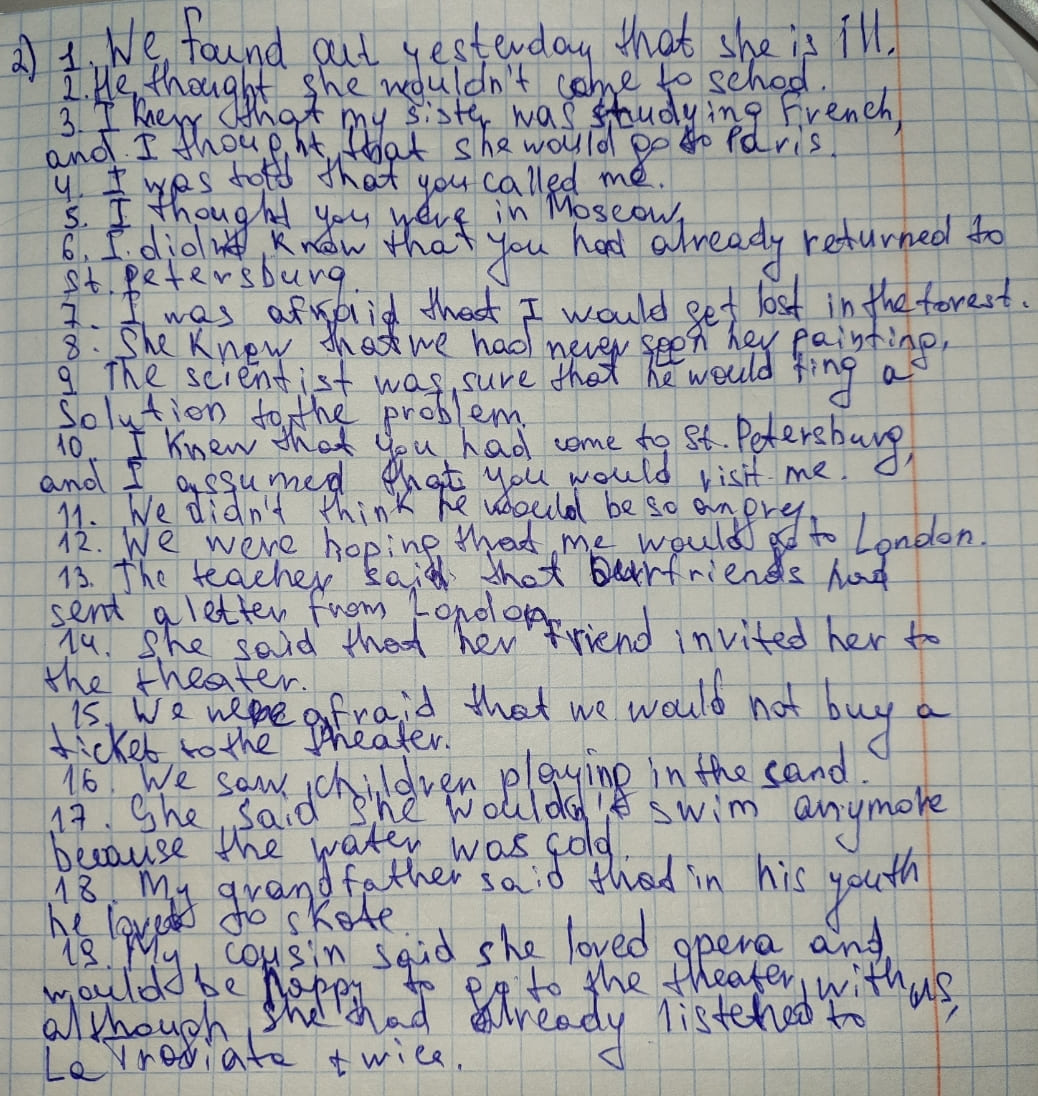 2) 1. We found out yesterday that she is ill.
2. He thought she wouldn't come to school.
3. I knew that my sister was studying French,
and I thought that she would go to Paris.
4. I was told that you called me.
5. I thought you were in Moscow.
6. I didn't know that you had already returned to
St. Petersburg.
7. I was afraid that I would get lost in the forest.
8. She knew that we had never seen her painting.
9 The scientist was sure that he would fing a
solution to the problem.
10. I knew that you had come to St. Petersburg,
and I assumed that you would visit me.
11. We didn't think he would be so angry.
12. We were hoping that me would go to London.
13. The teacher said that our friends had
sent a letter from London.
14. She said that her friend invited her to
the theater.
15. We were afraid that we would not buy a
ticket to the theater.
16. We saw children playing in the sand.
17. She said she wouldn't swim anymore
because the water was cold.
18. My grandfather said that in his youth
he loved to skate.
19. My cousin said she loved opera and
would be happy to go to the theater with us,
although she had already listened to
La Traviata twice.